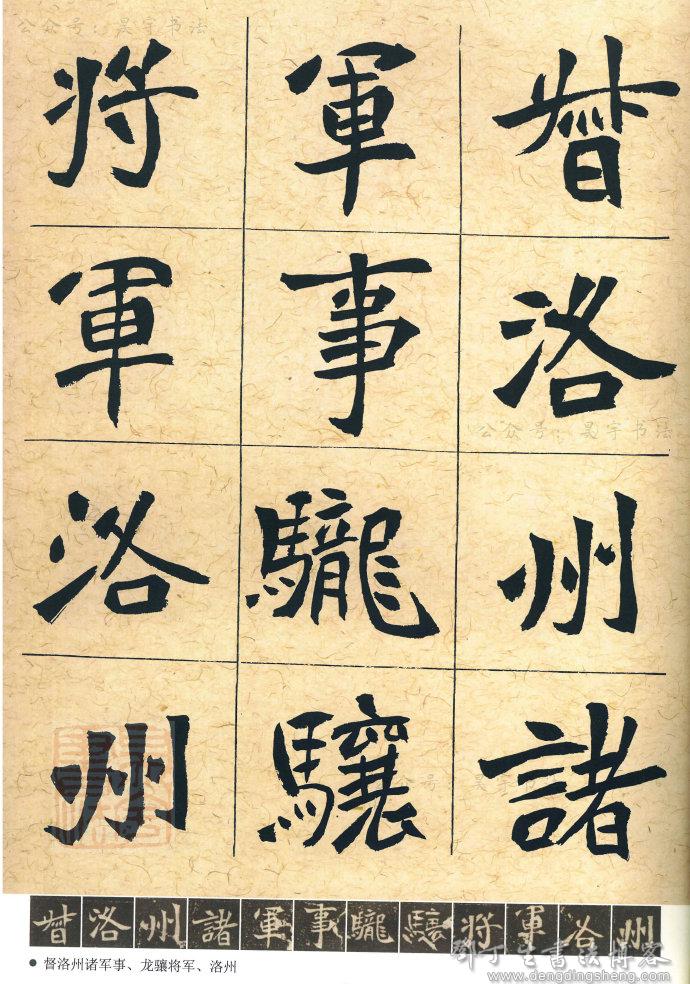 公众号：昊宇书法
督洛州諸
軍事驡驤
将軍洛州
公众号：昊宇书法
督洛州諸軍事驡驤将軍洛州
● 督洛州诸军事、龙骧将军、洛州
www.dengdingsheng.com